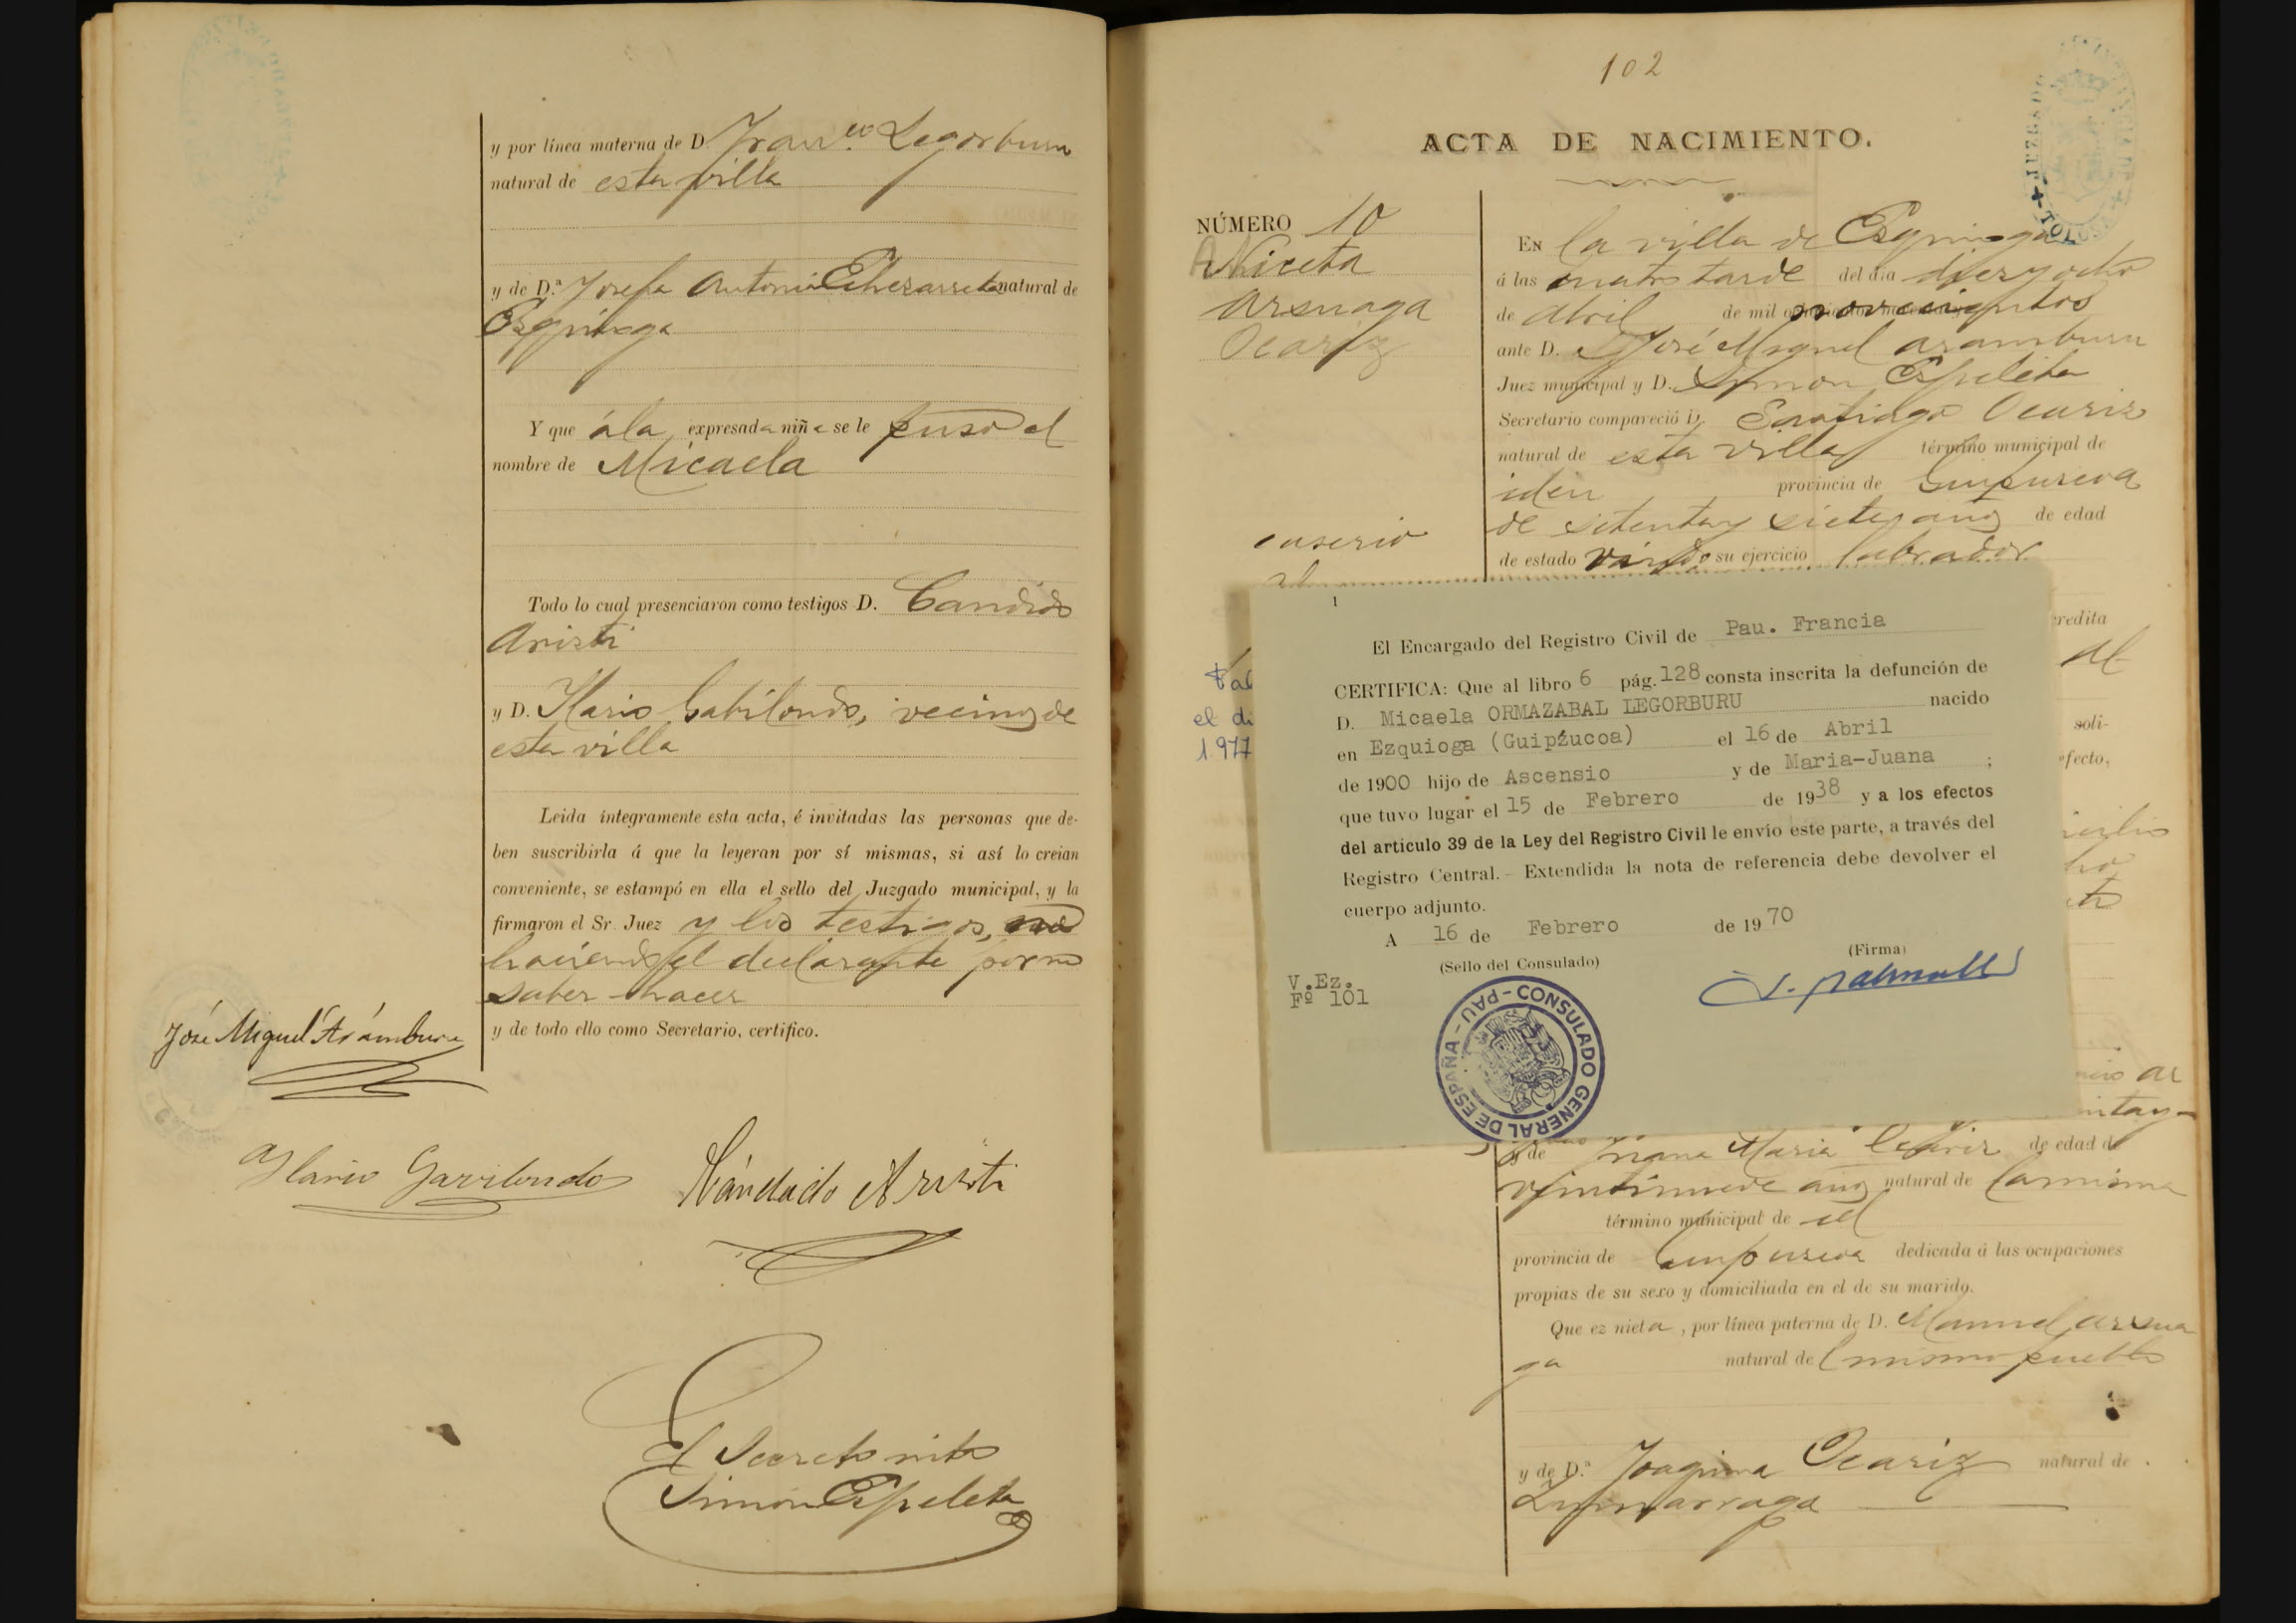 y por línea materna de D. Fran.co Legorburu
natural de esta villa
y de D.ª Josefa Antonia Echezarreta natural de
Ezquioga
Y que á la expresada niña se le puso el
nombre de Micaela
Todo lo cual presenciaron como testigos D. Candido
Aristi
y D. Ilario Gabilondo, vecinos de
esta villa
Leida íntegramente esta acta, é invitadas las personas que de-
ben suscribirla á que la leyeran por sí mismas, si así lo creían
conveniente, se estampó en ella el sello del Juzgado municipal, y la
firmaron el Sr. Juez y los testigos, no
haciendo el declarante por no
saber hacer
y de todo ello como Secretario, certifico.
José Miguel Arámburu
Ilario Gavilondo
Cándido Aristi
El Secretario
Simon Ezpeleta
102
ACTA DE NACIMIENTO.
NÚMERO 10
Aniceta
Arsuaga
Ocariz
caserio
En la villa de Ezquioga
á las cuatro tarde del día diez y ocho
de Abril de mil novecientos
ante D. José Miguel Aramburu
Juez municipal y D. Simon Ezpeleta
Secretario compareció D. Santiago Ocariz
natural de esta villa término municipal de
idem provincia de Guipuzcoa
de setenta y siete años de edad
de estado viudo su ejercicio labrador
credita
al
soli-
efecto,
el di
1.977
1
El Encargado del Registro Civil de Pau. Francia
CERTIFICA: Que al libro 6 pág. 128 consta inscrita la defunción de
D. Micaela ORMAZABAL LEGORBURU nacido
en Ezquioga (Guipúzcoa) el 16 de Abril
de 1900 hijo de Ascensio y de Maria-Juana ;
que tuvo lugar el 15 de Febrero de 1938 y a los efectos
del articulo 39 de la Ley del Registro Civil le envío este parte, a través del
Registro Central. - Extendida la nota de referencia debe devolver el
cuerpo adjunto.
A 16 de Febrero de 1970
(Sello del Consulado) (Firma)
V.Ez.
Fº 101
CONSULADO GENERAL DE ESPAÑA - PAU -
y de Juana Maria Ocariz de edad de
veintinueve años natural de la misma
término municipal de id
provincia de Guipuzcoa dedicada á las ocupaciones
propias de su sexo y domiciliada en el de su marido.
Que es nieta, por línea paterna de D. Manuel Arsua
ga natural de l mismo pueblo
y de D.ª Joaquina Ocariz natural de
Zumarraga